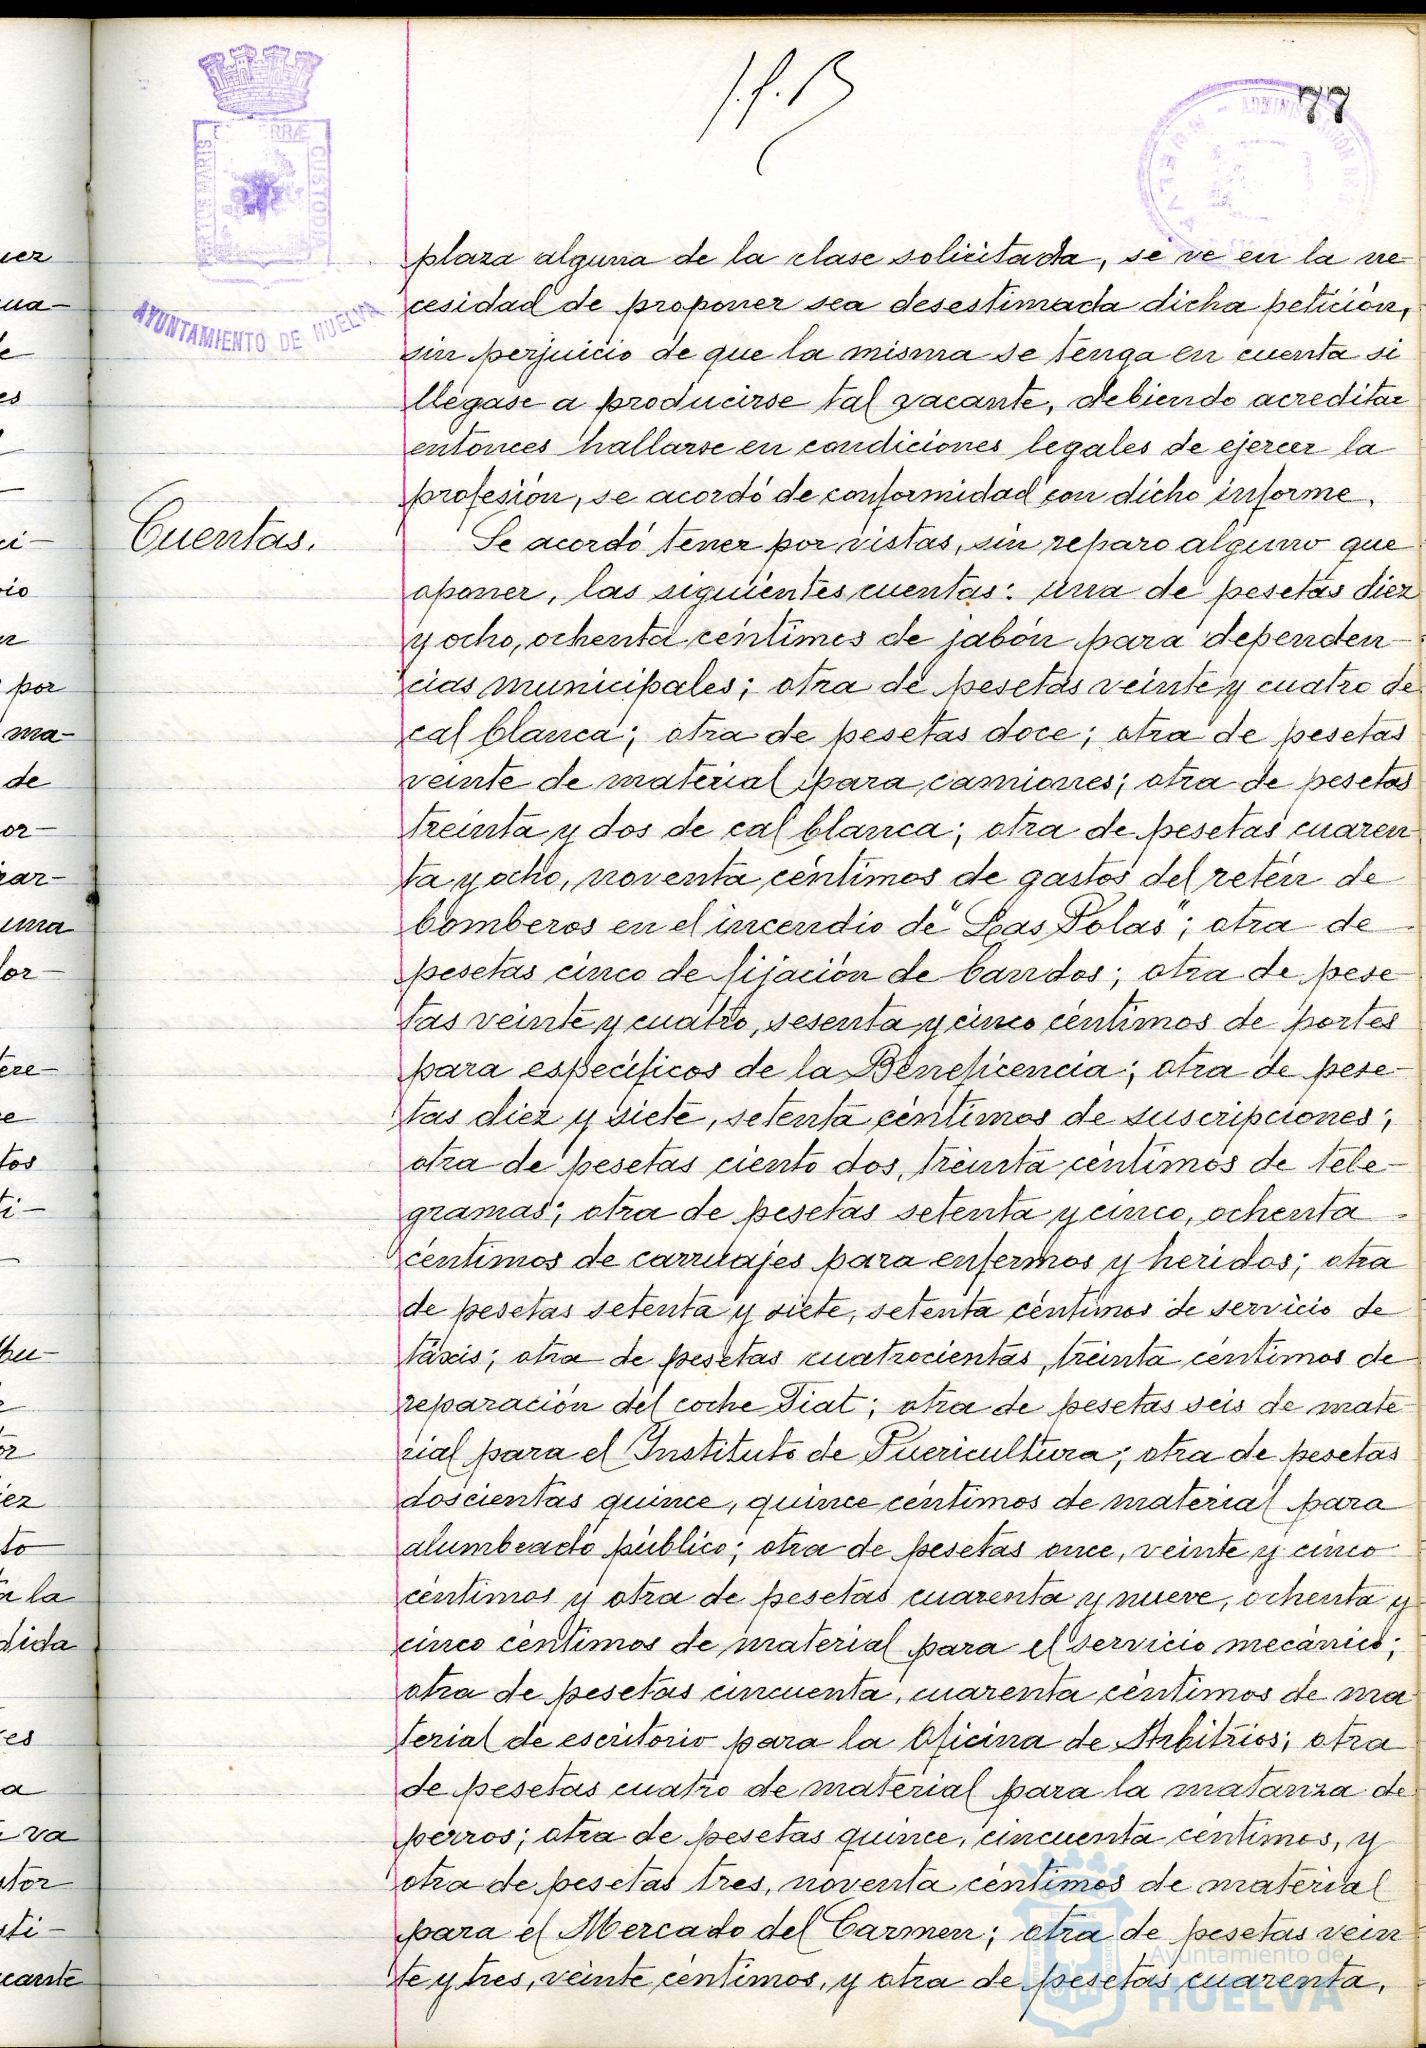 77
PORTUS MARIS ET TERRÆ CUSTODIA
AYUNTAMIENTO DE HUELVA
HUELVA - ADMINISTRACION
plaza alguna de la clase solicitada, se ve en la ne
cesidad de proponer sea desestimada dicha petición,
sin perjuicio de que la misma se tenga en cuenta si
llegase a producirse tal vacante, debiendo acreditar
entonces hallarse en condiciones legales de ejercer la
profesión, se acordó de conformidad con dicho informe.
Cuentas.
Se acordó tener por vistas, sin reparo alguno que
oponer, las siguientes cuentas: una de pesetas diez
y ocho, ochenta céntimos de jabón para dependen-
cias municipales; otra de pesetas veinte y cuatro de
cal blanca; otra de pesetas doce; otra de pesetas
veinte de material para camiones; otra de pesetas
treinta y dos de cal blanca; otra de pesetas cuaren
ta y ocho, noventa céntimos de gastos del retén de
bomberos en el incendio de "Las Polas"; otra de
pesetas cinco de fijación de bandos; otra de pese-
tas veinte y cuatro, sesenta y cinco céntimos de portes
para específicos de la Beneficencia; otra de pese-
tas diez y siete, setenta céntimos de suscripciones;
otra de pesetas ciento dos, treinta céntimos de tele-
gramas; otra de pesetas setenta y cinco, ochenta
céntimos de carruajes para enfermos y heridos; otra
de pesetas setenta y siete, setenta céntimos de servicio de
táxis; otra de pesetas cuatrocientas, treinta céntimos de
reparación del coche Fiat; otra de pesetas seis de mate-
rial para el Instituto de Puericultura; otra de pesetas
doscientas quince, quince céntimos de material para
alumbrado público; otra de pesetas once, veinte y cinco
céntimos y otra de pesetas cuarenta y nueve, ochenta y
cinco céntimos de material para el servicio mecánico;
otra de pesetas cincuenta, cuarenta céntimos de ma
terial de escritorio para la Oficina de Arbitrios; otra
de pesetas cuatro de material para la matanza de
perros; otra de pesetas quince, cincuenta céntimos, y
otra de pesetas tres, noventa céntimos de material
para el Mercado del Carmen; otra de pesetas vein
te y tres, veinte céntimos, y otra de pesetas cuarenta,
Ayuntamiento de
HUELVA